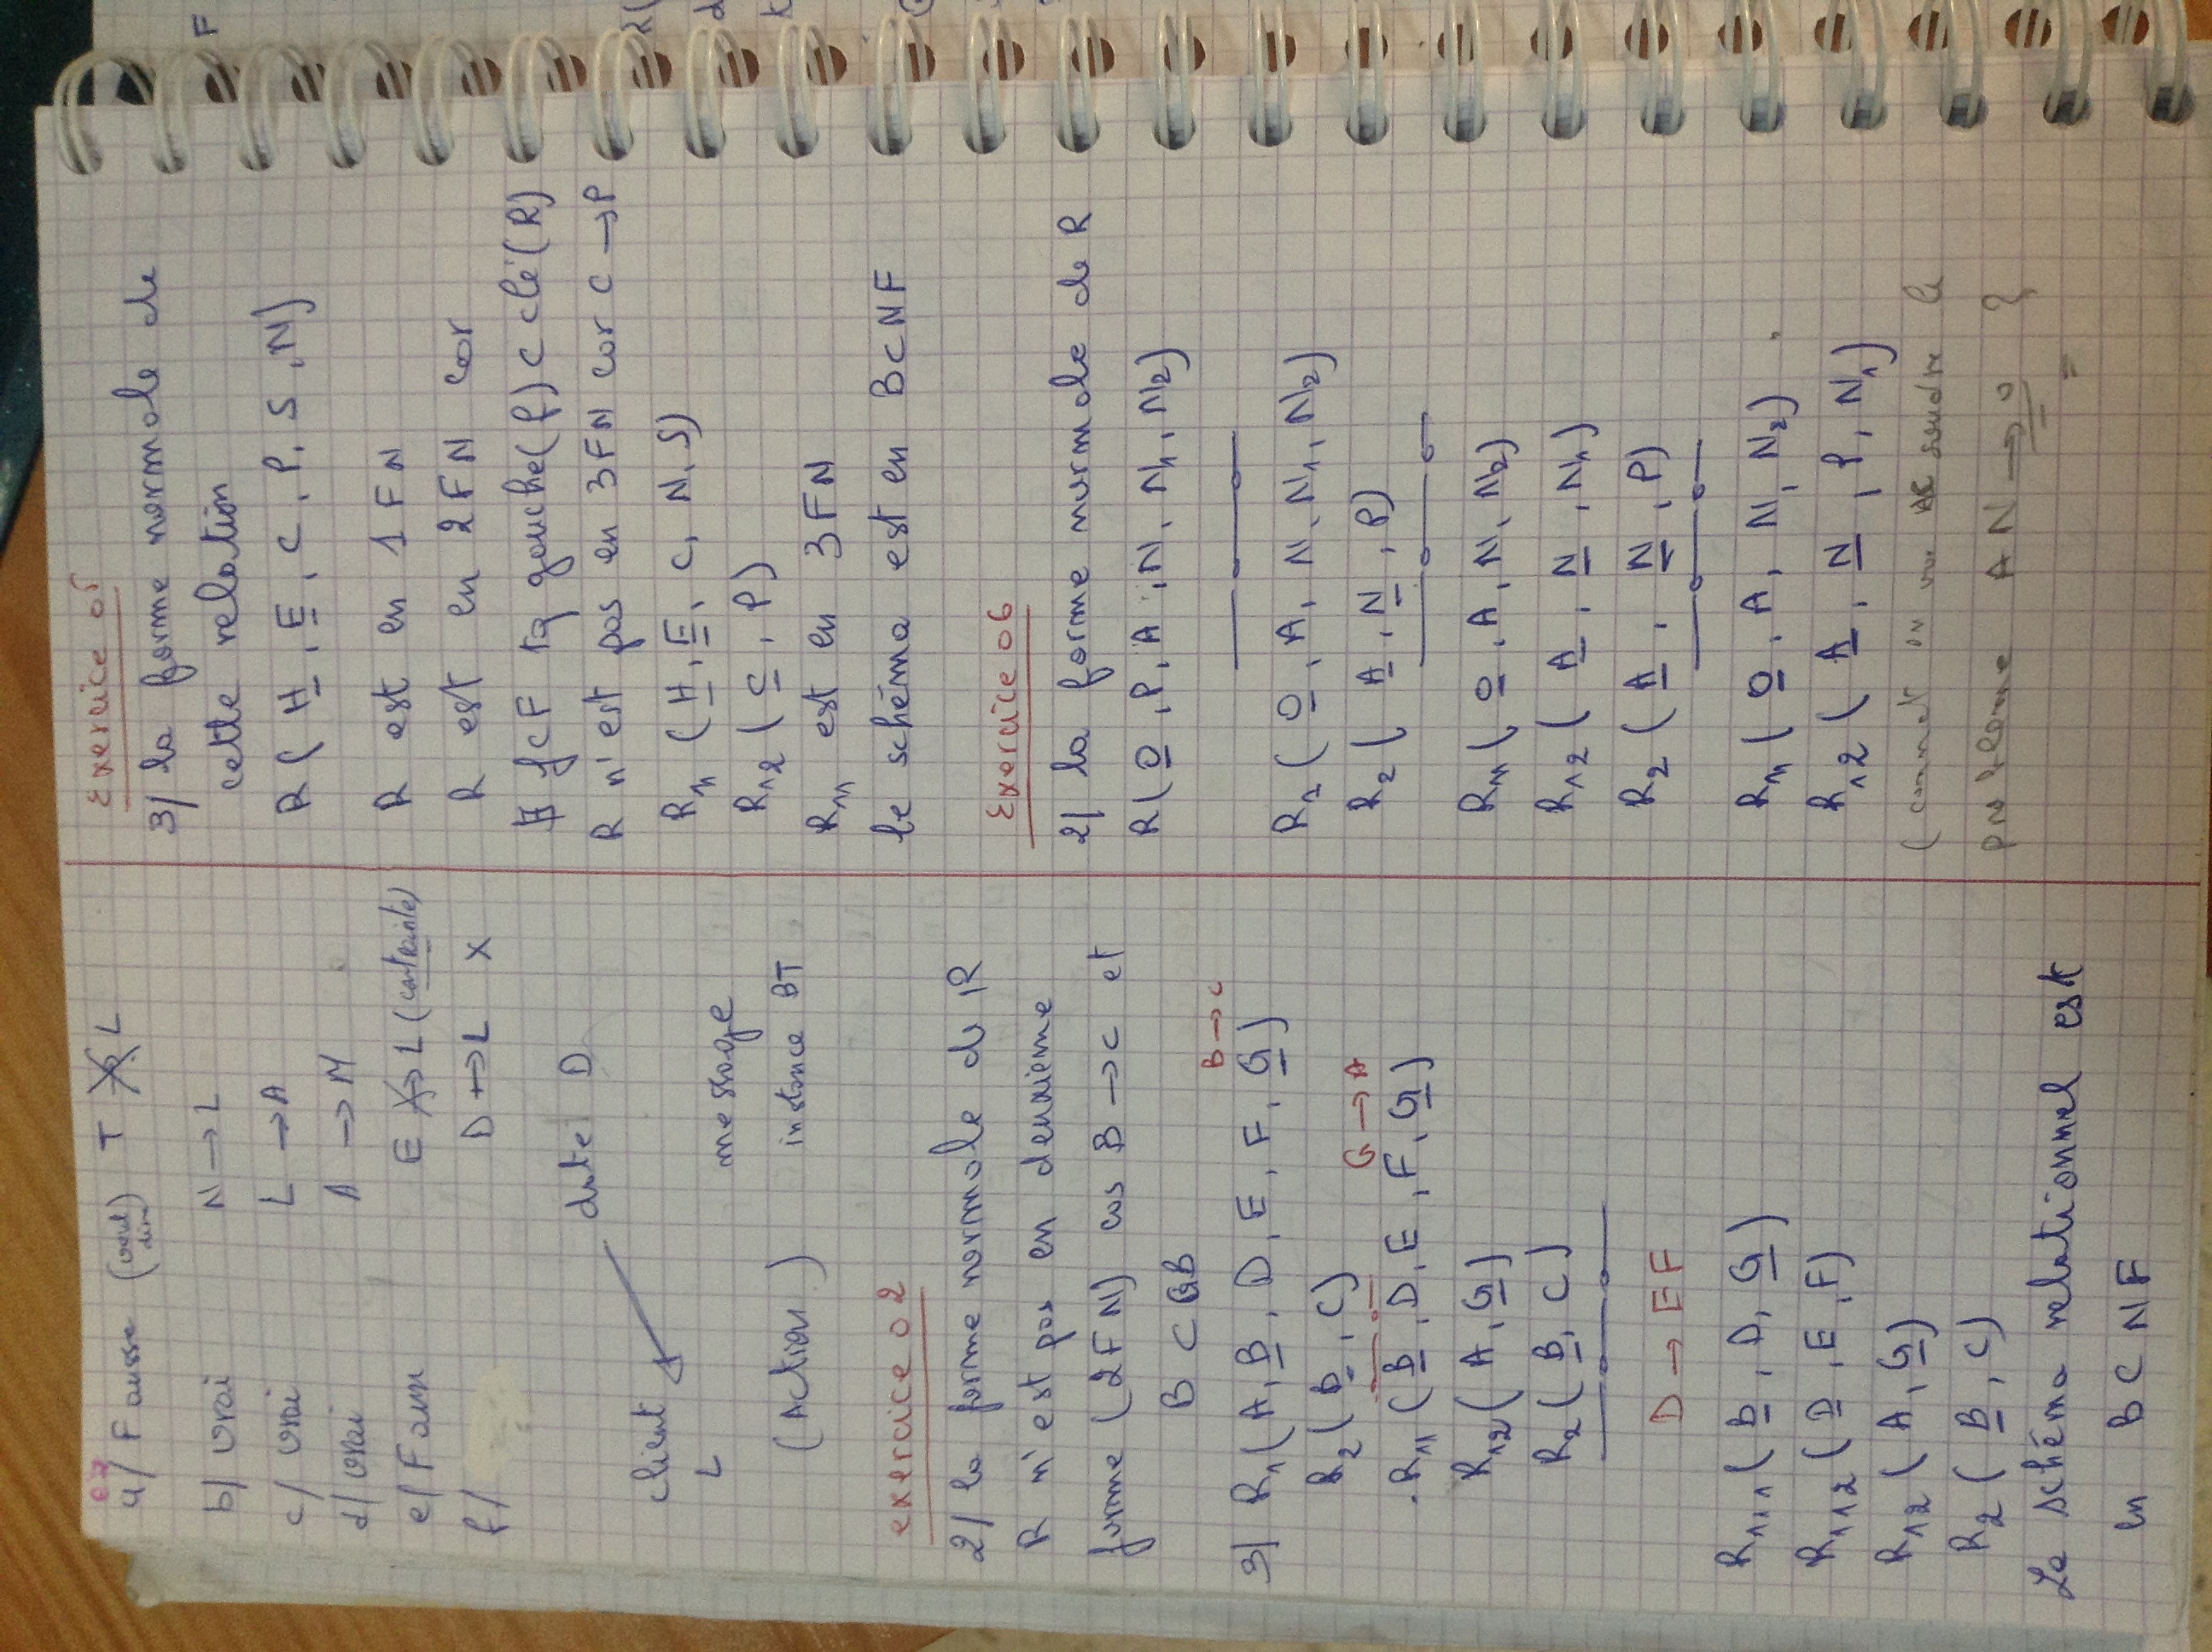 07
a/ Fausse (veut dire) T ↛ L
b/ vrai N → L
c/ vrai L → A
d/ vrai A → M
e/ Faux E ↛ L (contrainte)
f/ D ↛ L X
date D
client
L
message
(Action) instance BT
exercice 02
2/ la forme normale de R
R n'est pas en deuxieme
forme (2FN) cos B → C et
B ⊂ GB
B → C
3/ R1 ( A, B, D, E, F, G )
R2 ( B, C )
G → A
R11 ( B, D, E, F, G )
R12 ( A, G )
R2 ( B, C )
D → EF
R111 ( B, D, G )
R112 ( D, E, F )
R12 ( A, G )
R2 ( B, C )
Le schéma relationnel est
en BCNF
Exercice 05
3/ la forme normale de
cette relation
R ( H, E, C, P, S, N )
R est en 1FN
R est en 2FN car
∄ f ⊂ F tq gauche(f) ⊂ clé(R)
R n'est pas en 3FN car C → P
R11 ( H, E, C, N, S )
R12 ( C, P )
R11 est en 3FN
le schéma est en BCNF
Exercice 06
2/ la forme normale de R
R ( O, P, A, N, N1, N2 )
R1 ( O, A, N, N1, N2 )
R2 ( A, N, P )
R11 ( O, A, N, N2 )
R12 ( A, N, N1 )
R2 ( A, N, P )
R11 ( O, A, N, N2 )
R12 ( A, N, P, N1 )
( commet on va soudre le
probleme AN → O ?